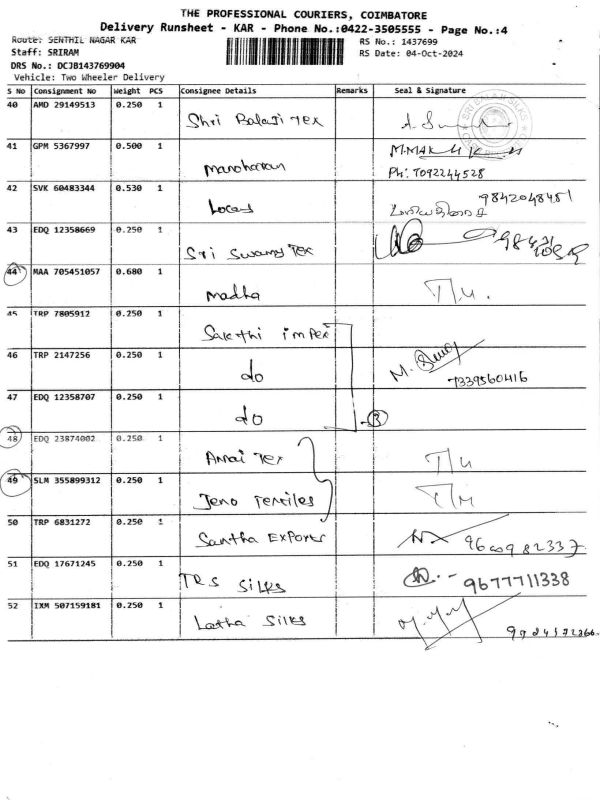 THE PROFESSIONAL COURIERS, COIMBATORE
Delivery Runsheet - KAR - Phone No.:0422-3505555 - Page No.:4
Route: SENTHIL NAGAR KAR
RS No.: 1437699
Staff: SRIRAM
RS Date: 04-Oct-2024
DRS No.: DCJB143769904
Vehicle: Two Wheeler Delivery
S No Consignment No Weight PCS Consignee Details Remarks Seal & Signature
40 AMD 29149513 0.250 1 Shri Balaji Tex
41 GPM 5367997 0.500 1 Manoharan
Ph: 7092244528
42 SVK 60483344 0.530 1 Locas 9842048451
43 EDQ 12358669 0.250 1 Sri Swamy Tex
44 MAA 705451057 0.680 1 Madha
45 TRP 7805912 0.250 1 Sakthi impex
46 TRP 2147256 0.250 1 do
7339560416
47 EDQ 12358707 0.250 1 do
3
48 EDQ 23874002 0.250 1 Annai Tex
49 SLM 355899312 0.250 1 Jeno Textiles
50 TRP 6831272 0.250 1 Santha Exports 9600982337
51 EDQ 17671245 0.250 1 TRS Silks 9677711338
52 IXM 507159181 0.250 1 Latha Silks